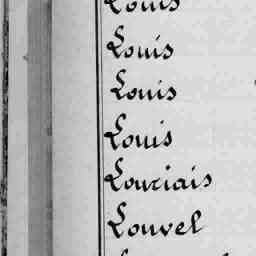 Louis
Louis
Louis
Louis
Louriais
Louvel